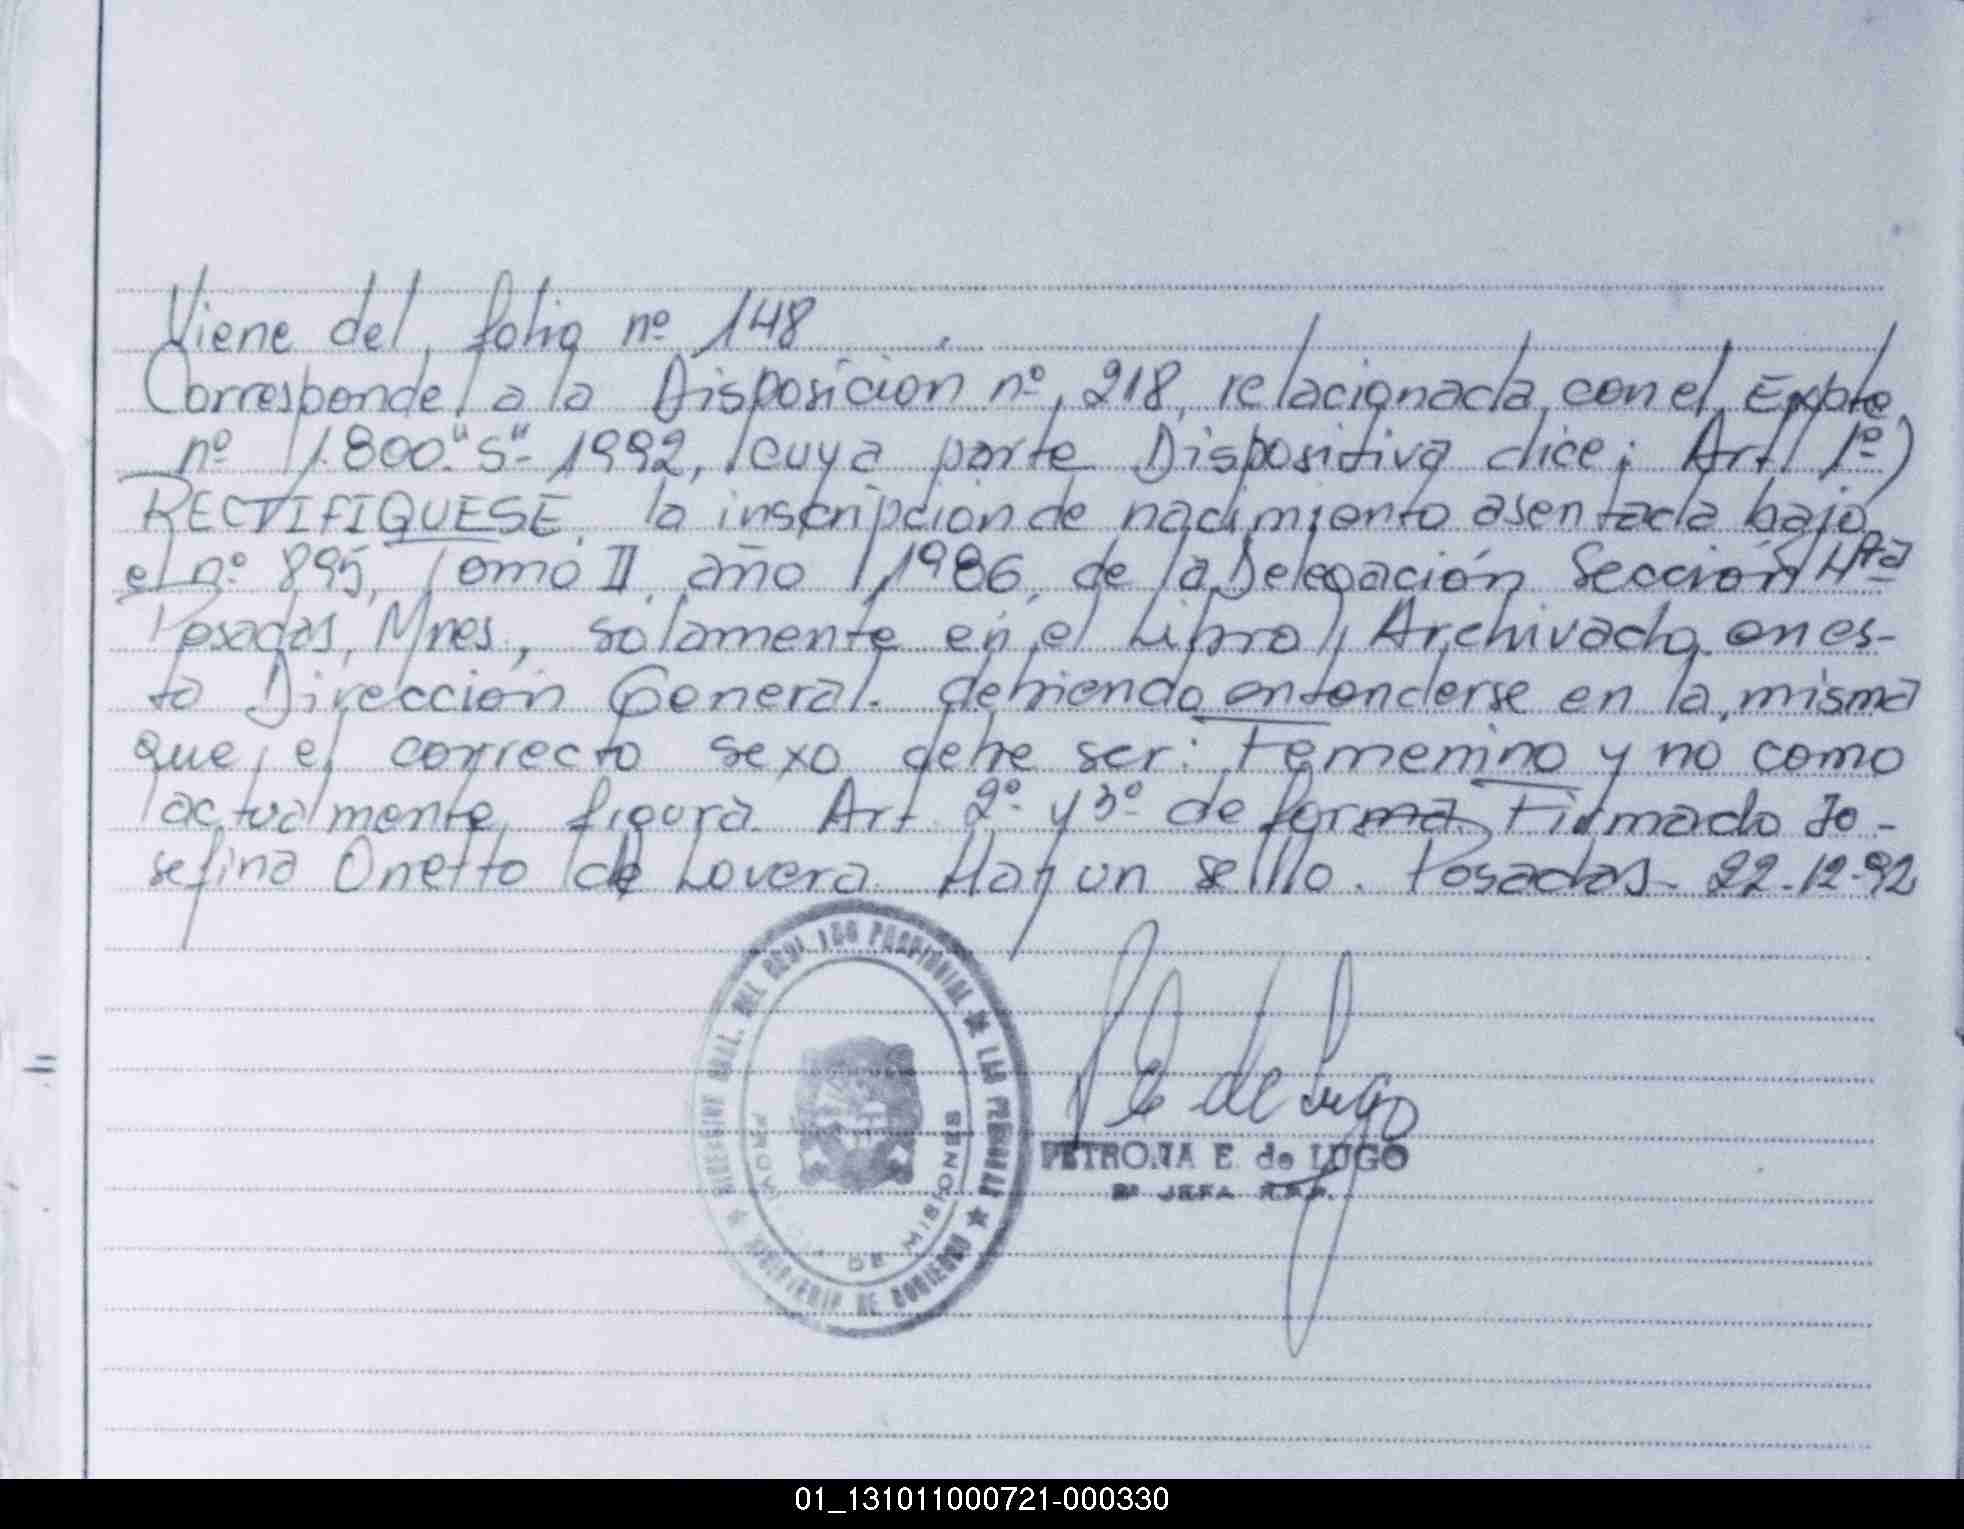 Viene del folio nº 148
Corresponde a la Disposicion nº 218, relacionada con el Expte
nº 1.800."S"- 1992, cuya parte Dispositiva dice; Art 1º)
RECTIFIQUESE la inscripcion de nacimiento asentada bajo
el nº 895, Tomo II año 1986, de la Delegación Sección 4ta
Posadas, Mnes., solamente en el Libro Archivado en es-
ta Dirección General. debiendo entenderse en la misma
que el correcto sexo debe ser: Femenino y no como
actualmente figura Art. 2º y 3º de forma. Firmado Jo-
sefina Onetto de Lovera. Hay un sello. Posadas- 22-12-92
GRAL. DEL REGISTRO PROVINCIAL DE LAS PERSONAS
MINISTERIO DE GOBIERNO
PROV. DE MISIONES
P E de Lugo
PETRONA E. de LUGO
JEFA R.P.P.
01_131011000721-000330